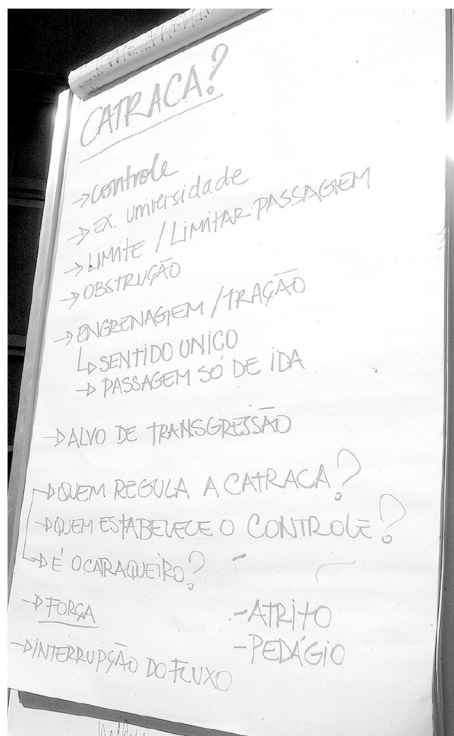 CATRACA?
→ controle
→ ex. universidade
→ LIMITE / LIMITAR PASSAGEM
→ OBSTRUÇÃO
→ ENGRENAGEM / TRAÇÃO
↳ SENTIDO UNICO
→ PASSAGEM SÓ DE IDA
→ ALVO DE TRANSGRESSÃO
→ QUEM REGULA A CATRACA?
→ QUEM ESTABELECE O CONTROLE?
→ É O CARAQUEIRO?
→ FORÇA
- ATRITO
- PEDÁGIO
→ INTERRUPÇÃO DO FLUXO